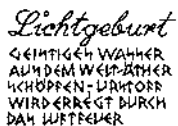 Lichtgeburt
GEISTIGES WASSER
AUS DEM WELT-ÄTHER
SCHÖPFEN - URSTOFF
WIRD ERREGT DURCH
DAS LUFTFEUER